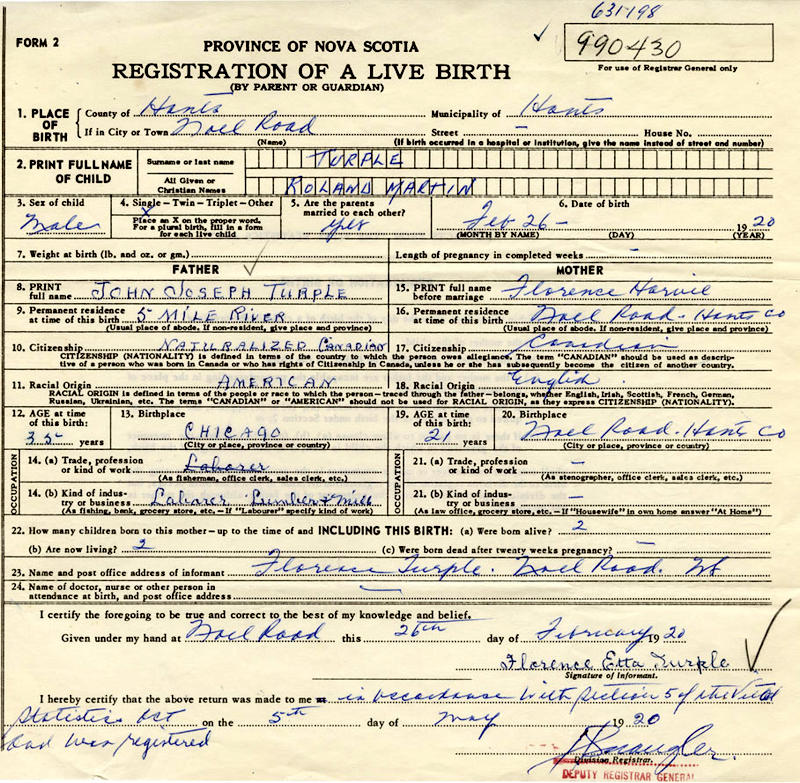 631-198
FORM 2
PROVINCE OF NOVA SCOTIA
990430
REGISTRATION OF A LIVE BIRTH
For use of Registrar General only
(BY PARENT OR GUARDIAN)
1. PLACE OF BIRTH County of Hants Municipality of Hants
If in City or Town Noel Road Street – House No.
(Name) (If birth occurred in a hospital or institution, give the name instead of street and number)
2. PRINT FULL NAME OF CHILD Surname or last name TURPLE
All Given or Christian Names ROLAND MARTIN
3. Sex of child 4. Single - Twin - Triplet - Other 5. Are the parents married to each other? 6. Date of birth
Male X Place an X on the proper word. For a plural birth, fill in a form for each live child yes Feb 26 – 1920
(MONTH BY NAME) (DAY) (YEAR)
7. Weight at birth (lb. and oz. or gm.) Length of pregnancy in completed weeks –
FATHER MOTHER
8. PRINT full name JOHN JOSEPH TURPLE 15. PRINT full name before marriage Florence Harvie
9. Permanent residence at time of this birth 5 MILE RIVER 16. Permanent residence at time of this birth Noel Road - Hants Co
(Usual place of abode. If non-resident, give place and province) (Usual place of abode. If non-resident, give place and province)
10. Citizenship NATURALIZED CANADIAN 17. Citizenship Canadian
CITIZENSHIP (NATIONALITY) is defined in terms of the country to which the person owes allegiance. The term "CANADIAN" should be used as descriptive of a person who was born in Canada or who has rights of Citizenship in Canada, unless he or she has subsequently become the citizen of another country.
11. Racial Origin AMERICAN 18. Racial Origin English
RACIAL ORIGIN is defined in terms of the people or race to which the person - traced through the father - belongs, whether English, Irish, Scottish, French, German, Russian, Ukrainian, etc. The terms "CANADIAN" or "AMERICAN" should not be used for RACIAL ORIGIN, as they express CITIZENSHIP (NATIONALITY).
12. AGE at time of this birth: 13. Birthplace 19. AGE at time of this birth: 20. Birthplace
35 years CHICAGO 21 years Noel Road - Hants Co
(City or place, province or country) (City or place, province or country)
OCCUPATION 14. (a) Trade, profession or kind of work Laborer OCCUPATION 21. (a) Trade, profession or kind of work –
(As fisherman, office clerk, sales clerk, etc.) (As stenographer, office clerk, sales clerk, etc.)
14. (b) Kind of industry or business Laborer Lumber & Mill 21. (b) Kind of industry or business –
(As fishing, bank, grocery store, etc.—If "Labourer" specify kind of work) (As law office, grocery store, etc.—If "Housewife" in own home answer "At Home")
22. How many children born to this mother—up to the time of and INCLUDING THIS BIRTH: (a) Were born alive? 2
(b) Are now living? 2 (c) Were born dead after twenty weeks pregnancy? –
23. Name and post office address of informant Florence Turple. Noel Road. NS
24. Name of doctor, nurse or other person in attendance at birth, and post office address –
I certify the foregoing to be true and correct to the best of my knowledge and belief.
Given under my hand at Noel Road this 26th day of February 1920
Florence Etta Turple
Signature of Informant.
I hereby certify that the above return was made to me in accordance with section 5 of the Vital
Statistics Act on the 5th day of May 1920
and was registered
Division Registrar.
DEPUTY REGISTRAR GENERAL